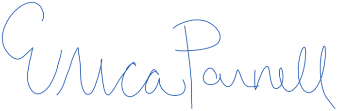 Erica Parnell